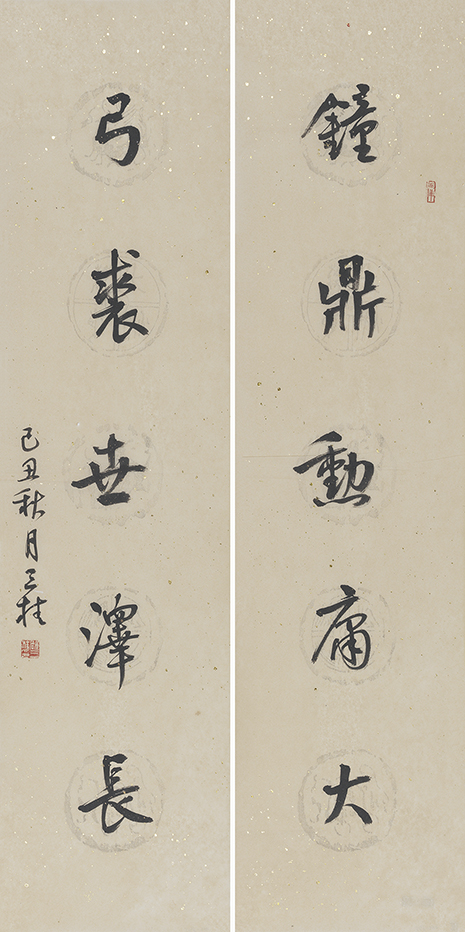 鐘鼎勳庸大
弓裘世澤長
己丑秋月三柱